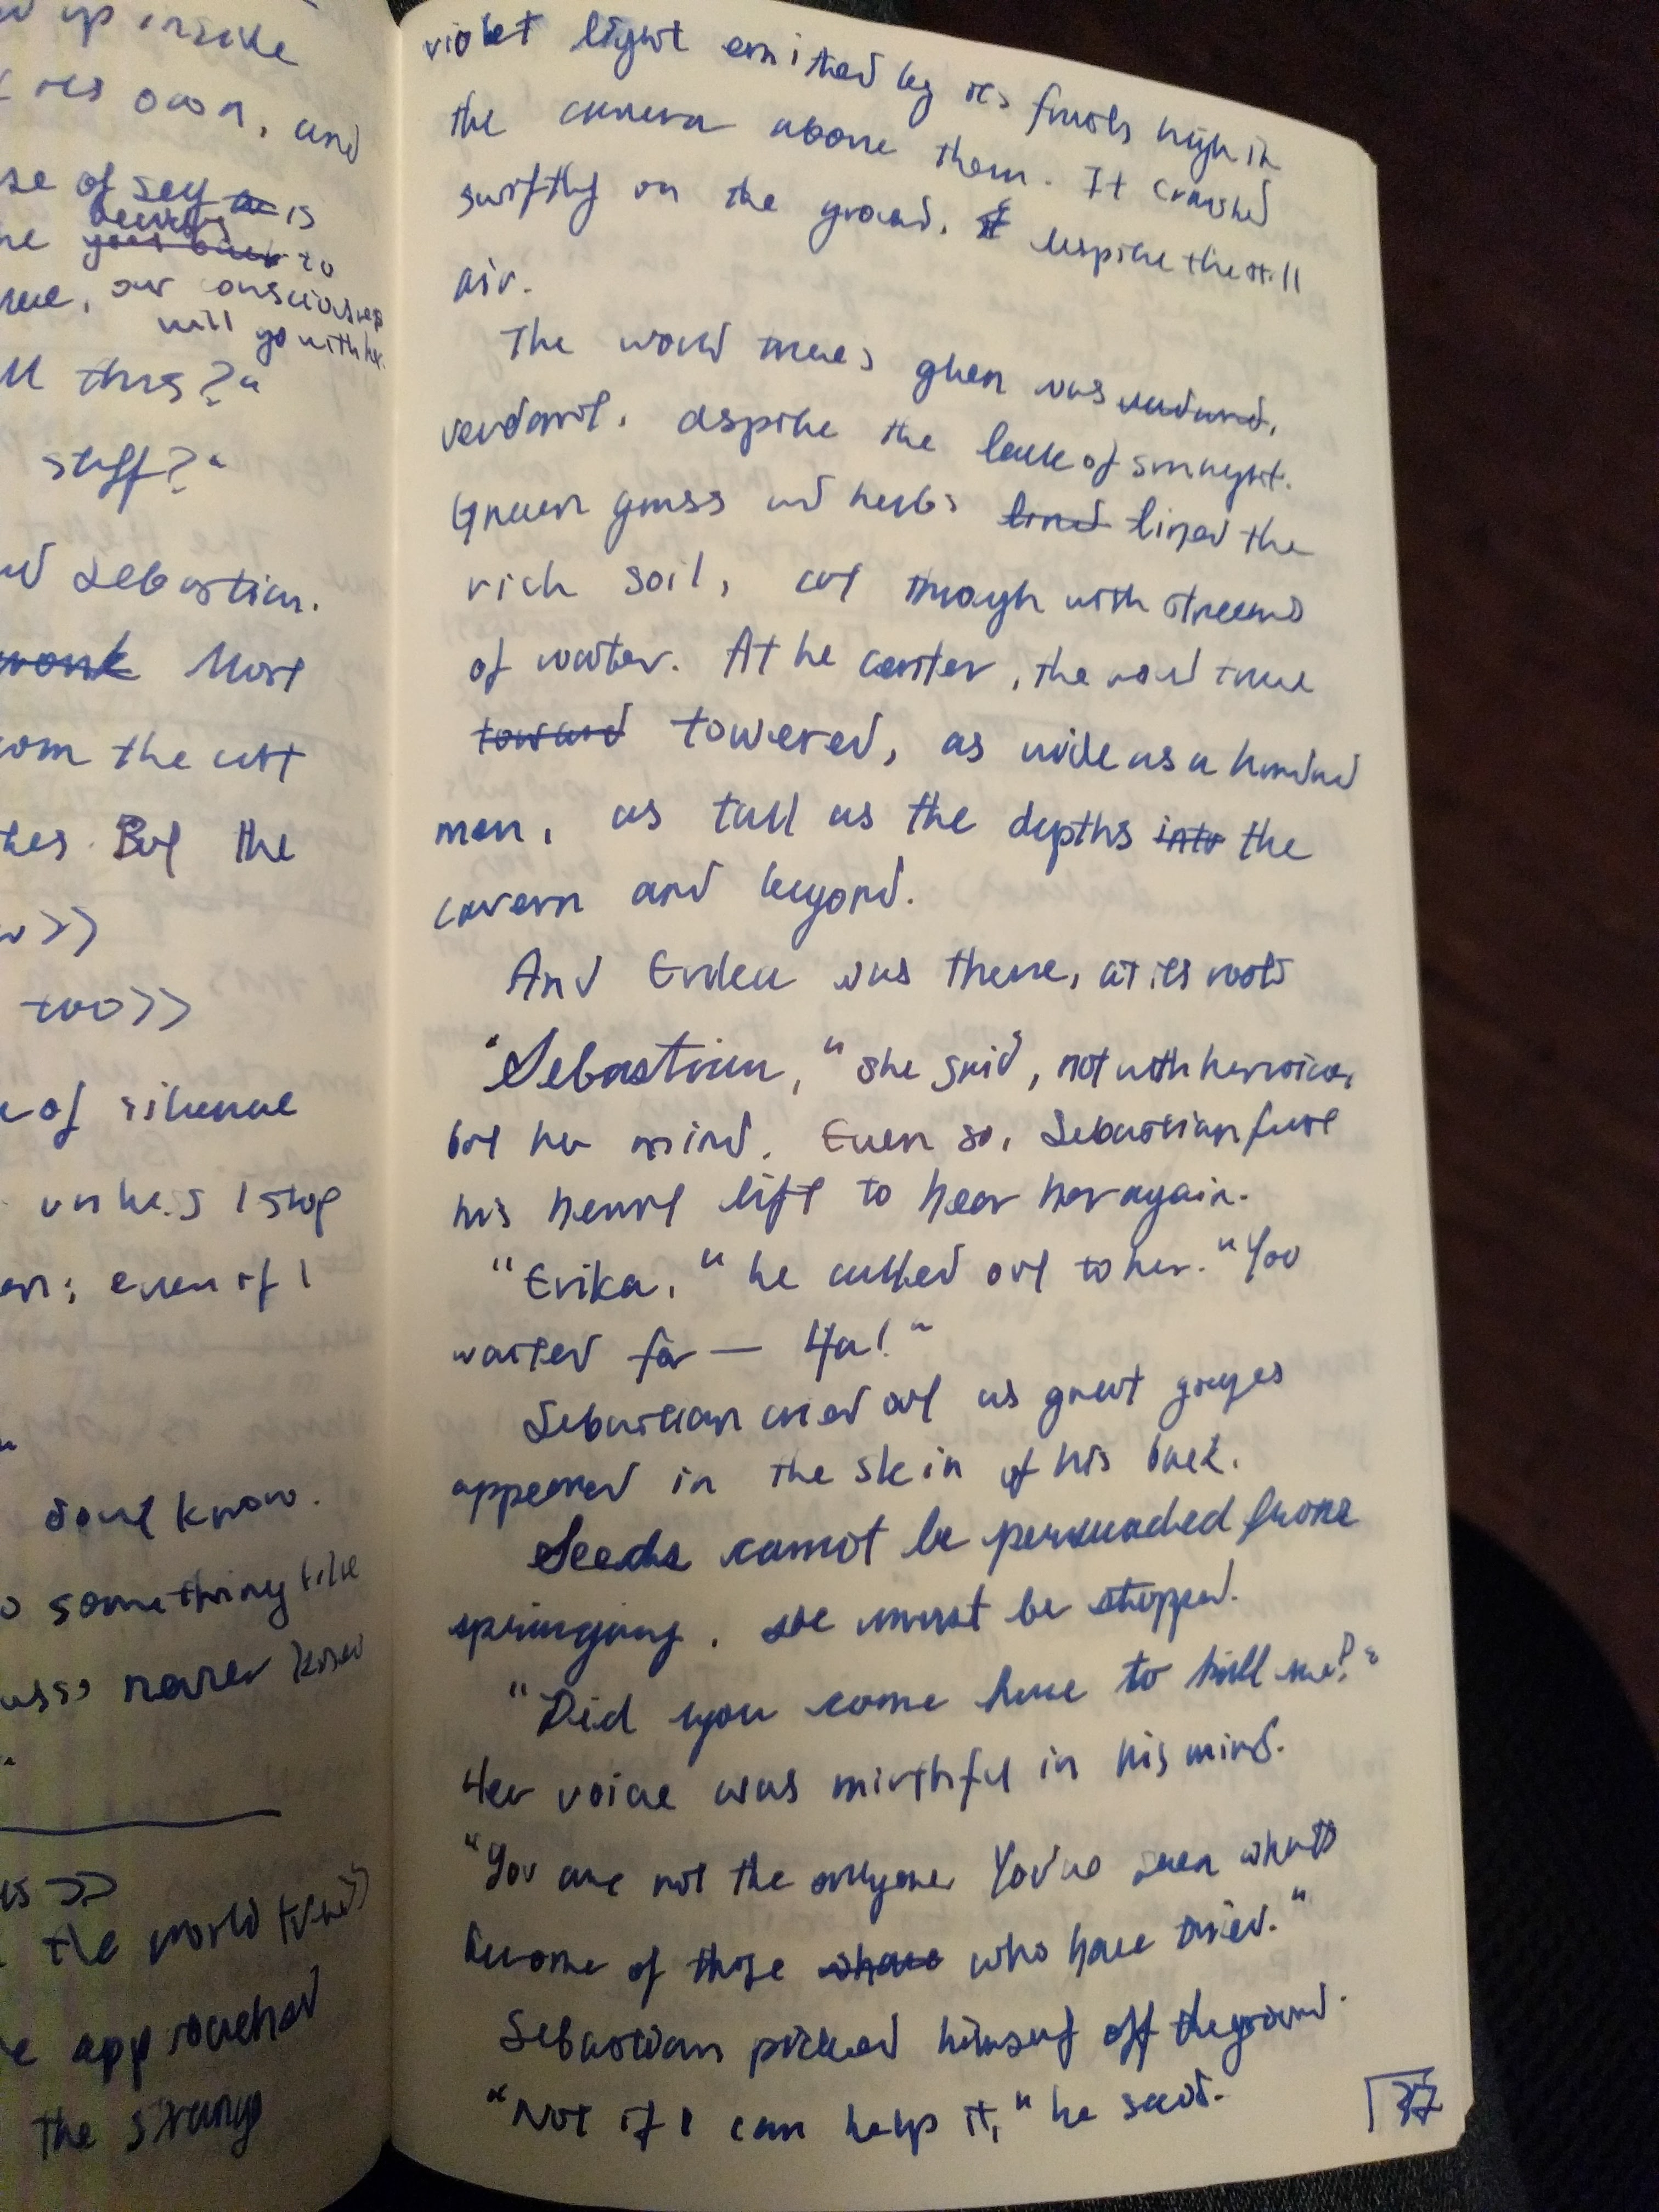 up inside
own, and
se of self is
becoming
to
our consciousness
will go with her.
this?"
stuff?"
Sebastian.
Most
the
But the
>>
too>>
of silence
unless I stop
even if I
dont know.
something like
never knew
>>
the world tree>>
approached
the strange
violet light emitted by its fronds high in
the cavern above them. It crashed
swiftly on the ground, despite the still
air.
The world tree's glen was verdant,
verdant, despite the lack of sunlight.
Green grass and herbs lined lined the
rich soil, cut through with streams
of water. At he center, the world tree
toward towered, as wide as a hundred
men, as tall as the depths into the
cavern and beyond.
And was there, at its roots
"Sebastian," she said, not with her voice,
but her mind. Even so, Sebastian felt
his heart lift to hear her again.
"Erika," he called out to her. "You
waited for — Ha!"
Sebastian cried out as great gouges
appeared in the skin of his back.
Seeds cannot be persuaded from
springing. She must be stopped.
"Did you come here to kill me?"
Her voice was mirthful in his mind.
"You are not the only one. You've seen what's
become of those who have tried."
Sebastian picked himself off the ground.
"Not if I can help it," he said.
37